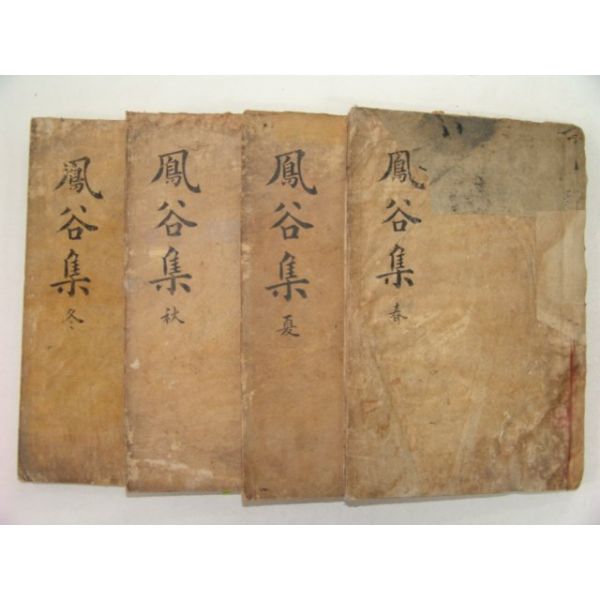 鳳谷集
春
鳳谷集
夏
鳳谷集
秋
鳳谷集
冬